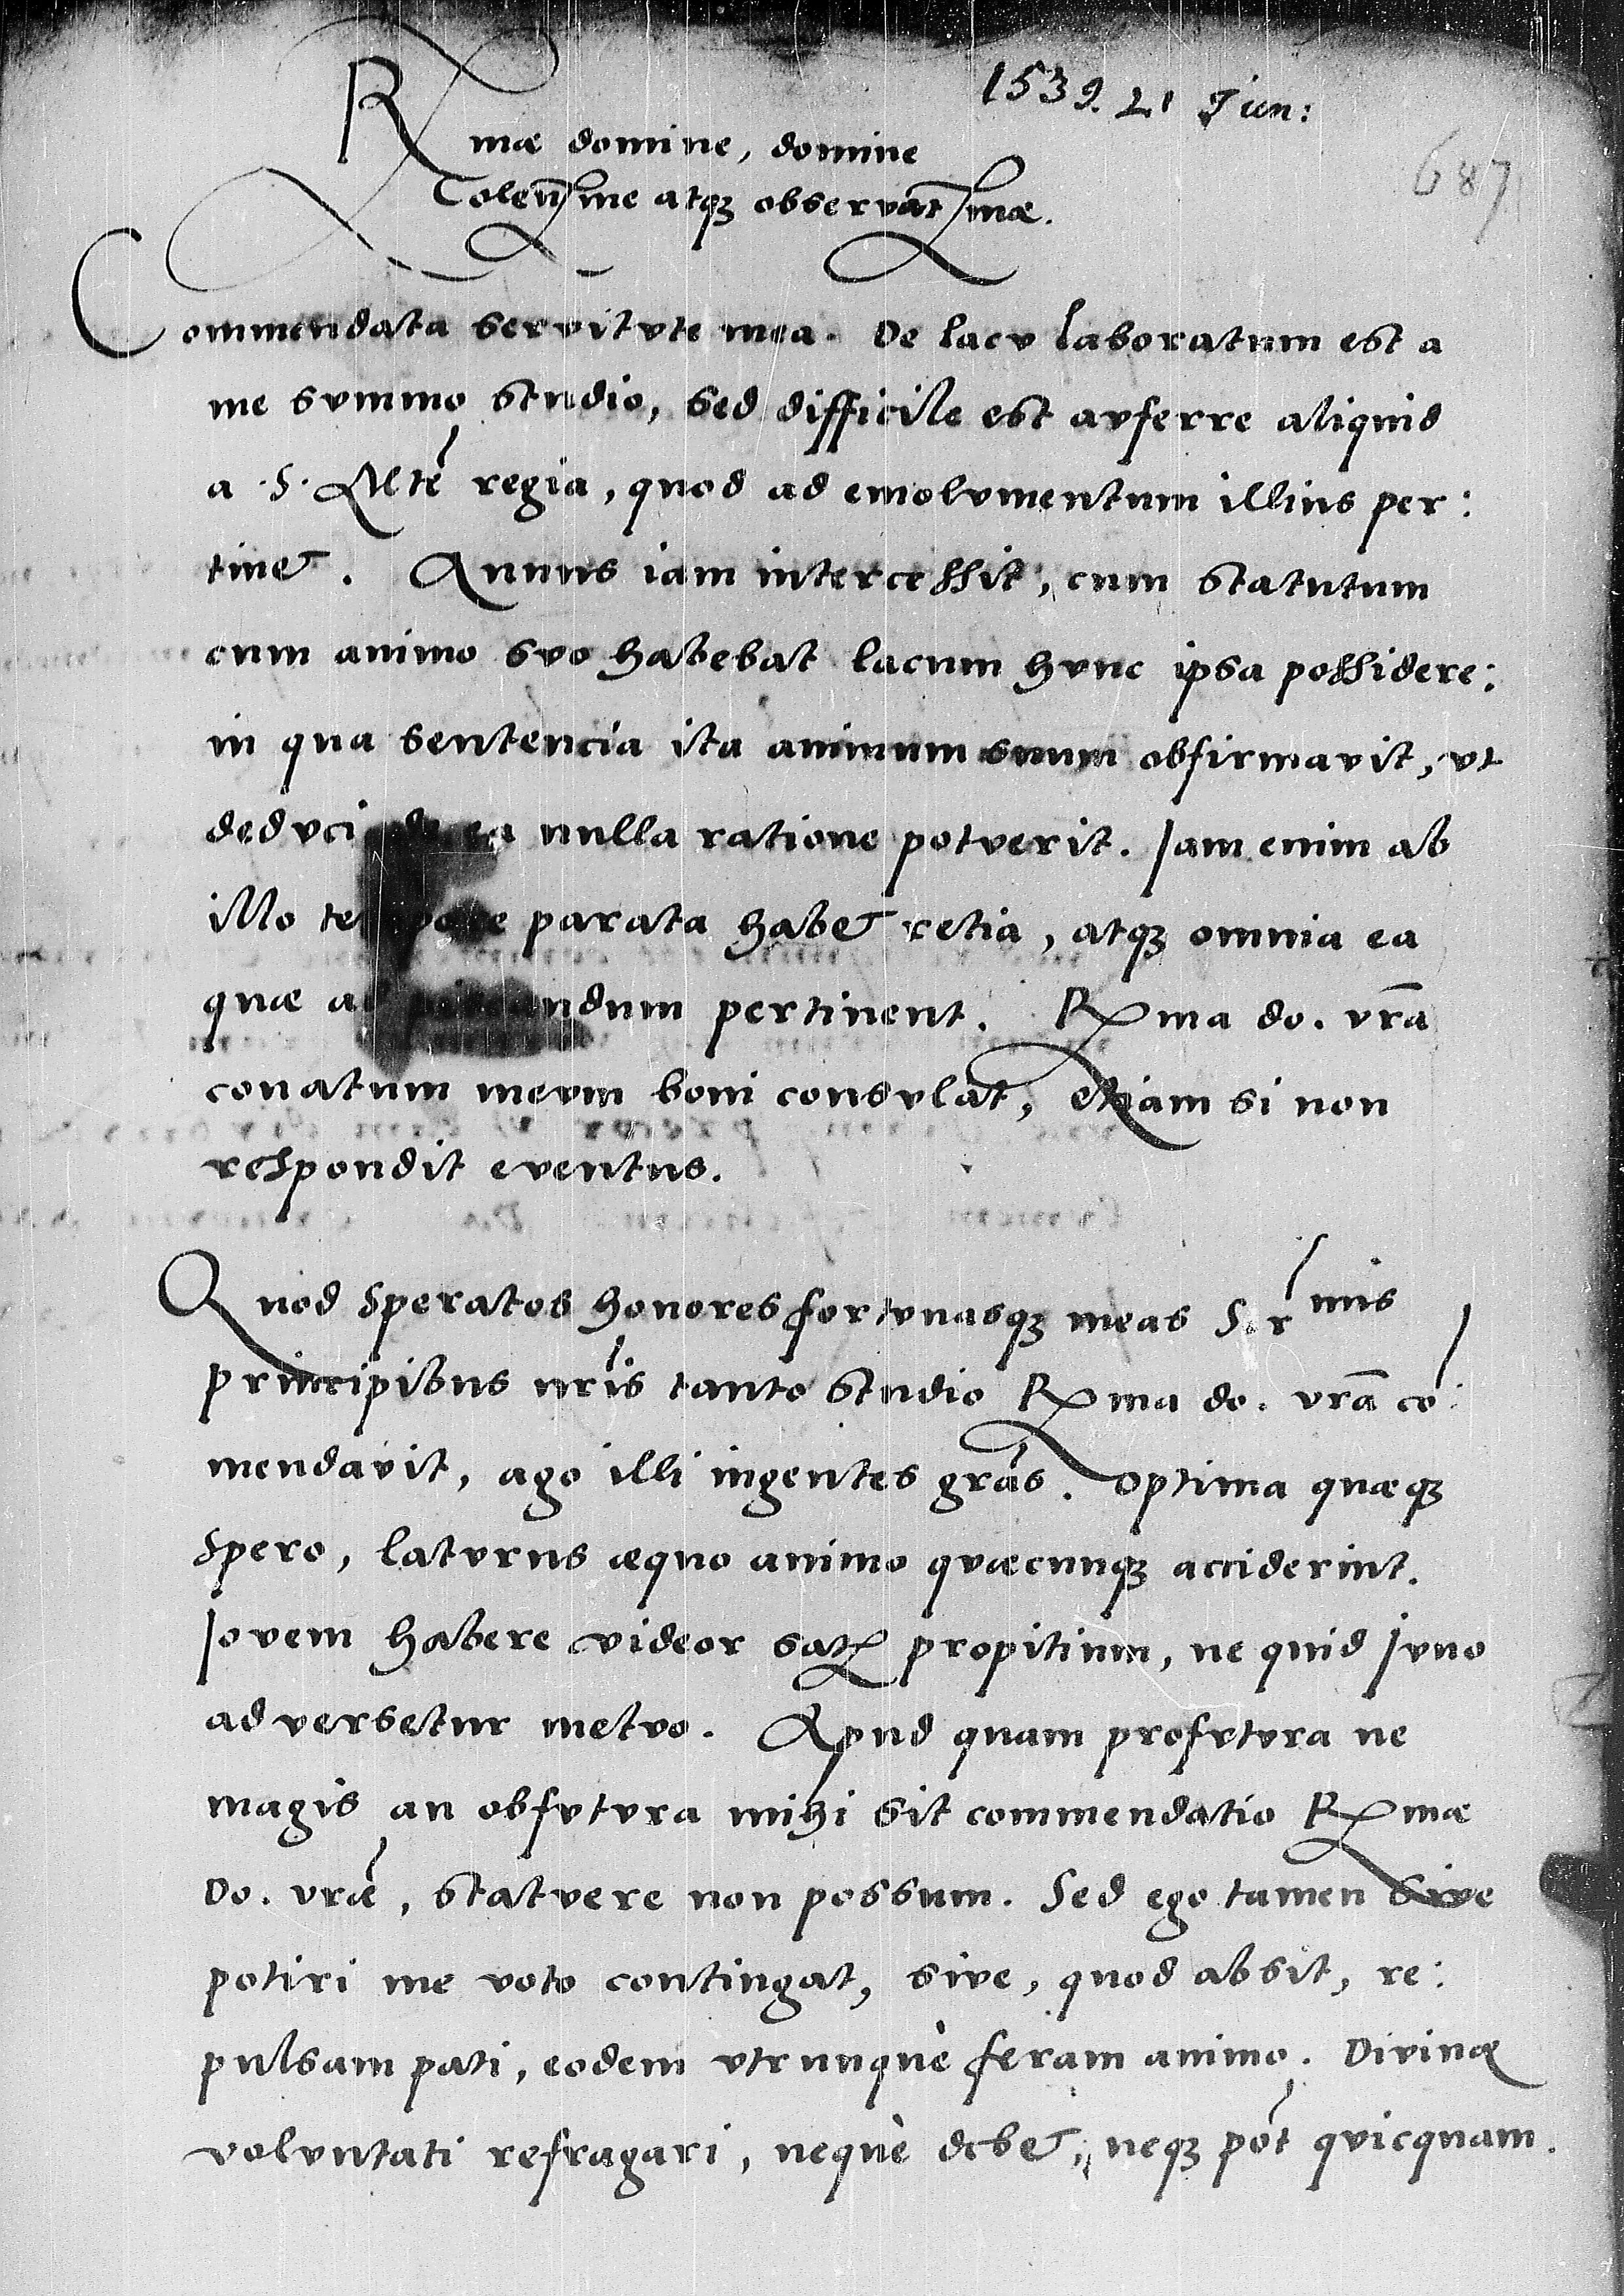 1539. 21 Jun:
687
Rmæ domine, domine
Colen^me atqȝ observat^mæ.
Commendata servitvte mea. De lacv laboratum est a
me svmmo studio, sed difficile est avferre aliquid
a .S. Mte regia, quod ad emolvmentum illius per:
tinet. Annus iam intercessit, cum statutum
cum animo svo habebat lacum hvnc ipsa possidere:
in qua sentencia ita animum suum obfirmavit, vt
dedvci de ea nulla ratione potverit. Jam enim ab
illo tempore parata habet retia, atqȝ omnia ea
quæ ad piscandum pertinent. Rma do. vra
conatum mevm boni consvlat, etiam si non
respondit eventus.
Quod speratos honores fortvnasqȝ meas Sr mis
principibus nris tanto studio Rma do. vra co:
mendavit, ago illi ingentes gras. Optima quæqȝ
spero, latvrus æquo animo qvæcunqȝ acciderint.
Jovem habere videor satis propitium, ne quid Jvno
adversetur metvo. Apud quam profvtvra ne
magis an obfvtvra mihi sit commendatio Rmæ
Do. vræ, statvere non possum. Sed ego tamen sive
potiri me voto contingat, sive, quod absit, re:
pulsam pati, eodem vtrunquè feram animo. Divinæ
volvntati refragari, nequè debet, neqȝ pot qvicquam.